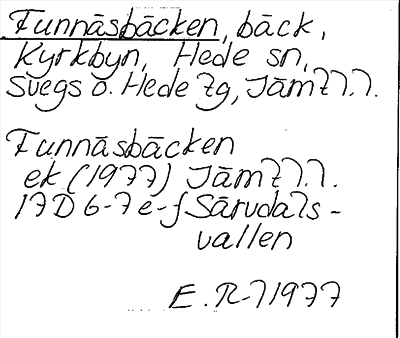 Funnäsbäcken, bäck,
Kyrkbyn, Hede sn,
Svegs o. Hede tg, Jämtl.l.
Funnäsbäcken
ek (1977) Jämtl.l.
17D 6-7 e-f Särvdals-
vallen
E. R-l 1977